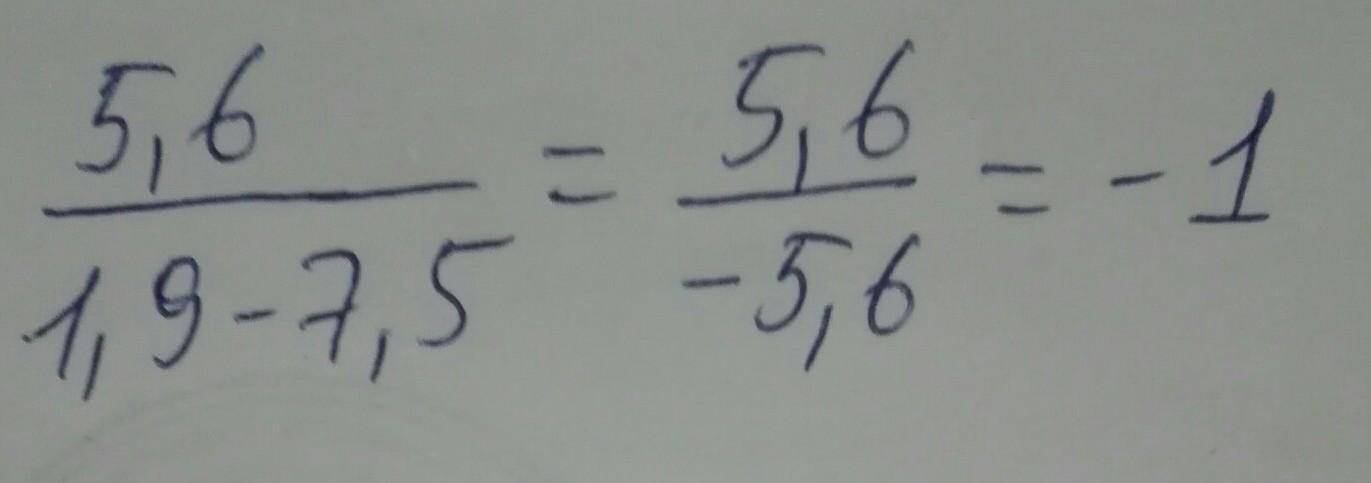 5,6/(1,9-7,5) = 5,6/(-5,6) = -1